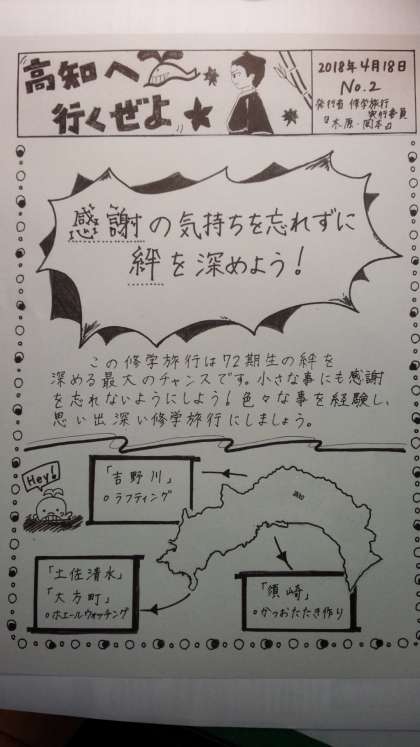 高知へ
行くぜよ
2018年4月18日
No.2
発行者 修学旅行
実行委員
『木原・岡本』
感謝の気持ちを忘れずに
絆を深めよう!
この修学旅行は72期生の絆を
深める最大のチャンスです。小さな事にも感謝
を忘れないようにしよう!色々な事を経験し、
思い出深い修学旅行にしましょう。
Hey!
「吉野川」
○ラフティング
「土佐清水」
「大方町」
○ホエールウォッチング
「須崎」
○かつおたたき作り